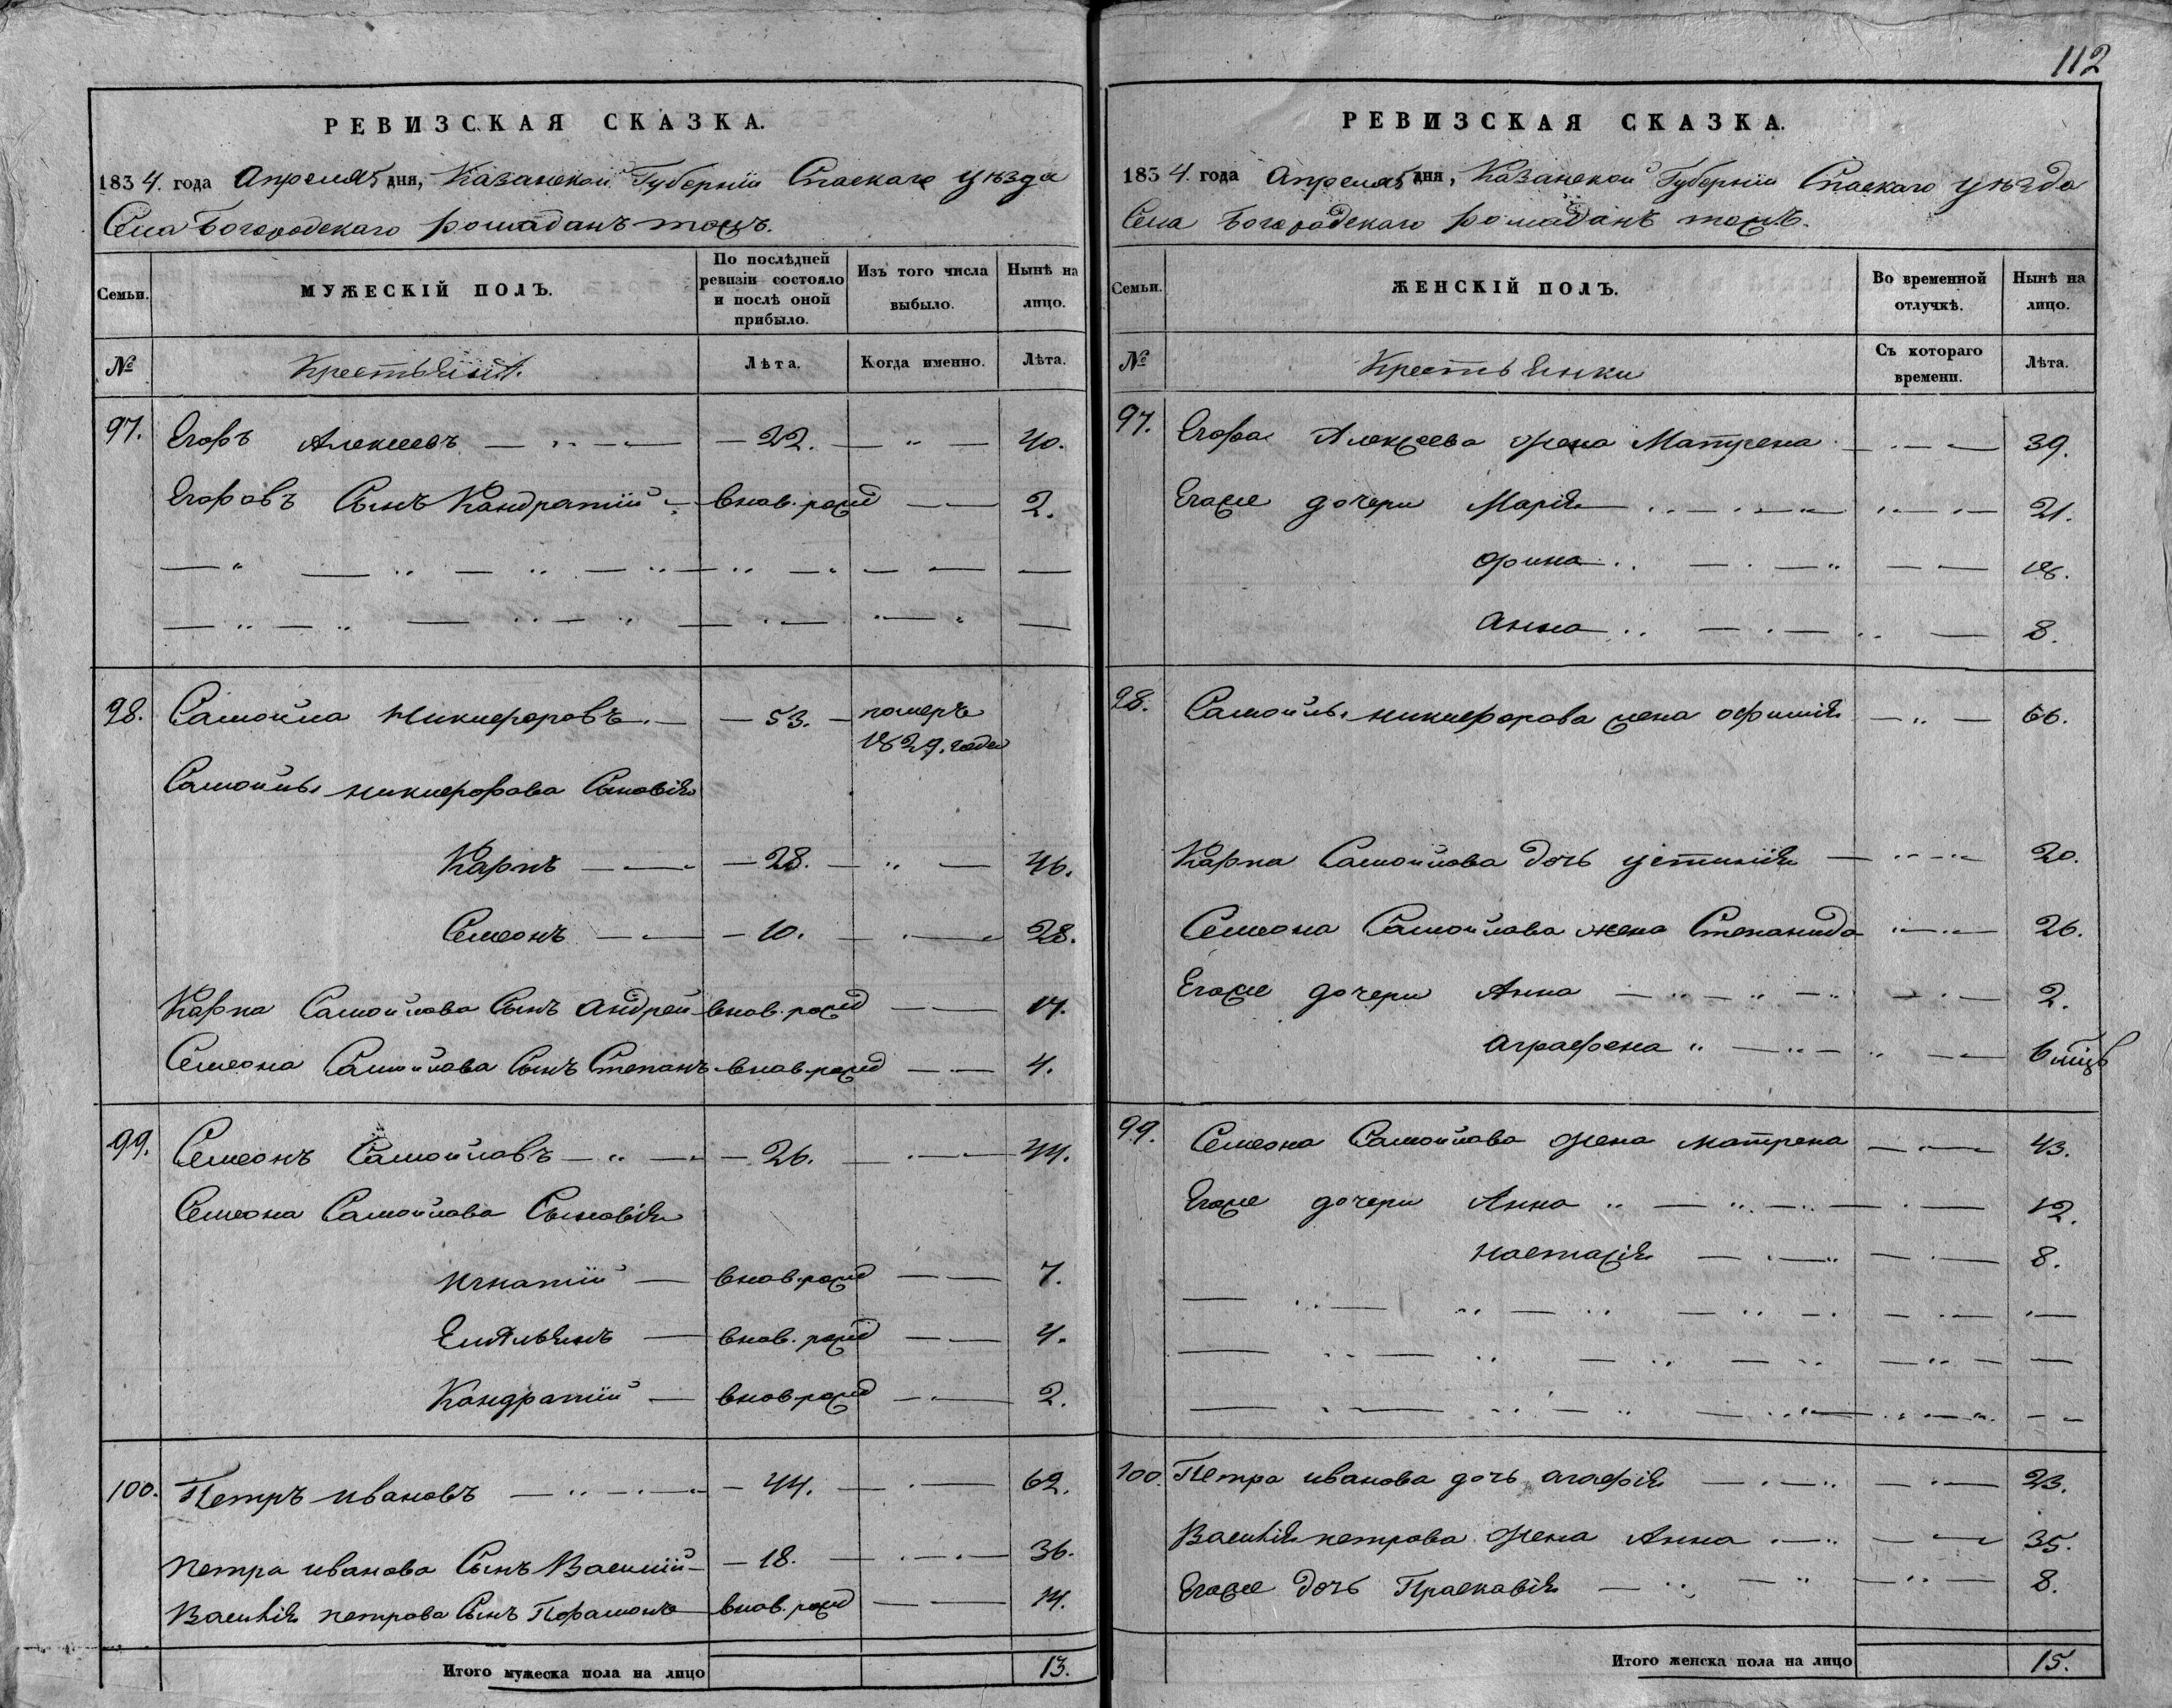 РЕВИЗСКАЯ СКАЗКА.
1834. года Апреля 5 дня, Казанской Губернiи Спаскаго уѣзда
Села Богородскаго Ромадантожъ.
Семьи. МУЖЕСКIЙ ПОЛЪ. По послѣдней ревизiи состояло и послѣ оной прибыло. Изъ того числа выбыло. Нынѣ на лицо.
№ Крестьяня. Лѣта. Когда именно. Лѣта.
97. Егоръ Алексеевъ — 22. — 40.
Егоровъ Сынъ Кандратiй внов. рожд — 2.
98. Самойла Никифоровъ — 53. — померъ 1829. года
Самойлы никифорова Сыновiя
Карпъ — 28. — 46.
Семеонъ — 10. — 28.
Карпа Самойлова Сынъ Андрей внов. рожд — 17.
Семеона Самойлова Сынъ Степанъ внов. рожд — 4.
99. Семеонъ Самойловъ — 26. — 44.
Семеона Самойлова Сыновiя
игнатiй — внов. рожд — 7.
Емѣльянъ — внов. рожд — 4.
Кандратiй — внов. рожд — 2.
100. Петръ ивановъ — 44. — 62.
петра иванова Сынъ Василiй — 18. — 36.
Василiя петрова Сынъ Парамонъ внов. рожд — 14.
Итого мужеска пола на лицо 13.
112
РЕВИЗСКАЯ СКАЗКА.
1834. года Апреля 5 дня, Казанской Губернiи Спаскаго уѣзда
Села Богородскаго Ромадантожъ.
Семьи. ЖЕНСКIЙ ПОЛЪ. Во временной отлучкѣ. Нынѣ на лицо.
№ Крестьянки Съ котораго времени. Лѣта.
97. Егора Алексеева жена Матрена — 39.
Егоже дочери Марiя — 21.
Орина — 18.
Анна — 8.
98. Самойлы никифорова жена офимiя — 66.
Карпа Самойлова дочь устинiя — 20.
Семеона Самойлова жена Степанида — 26.
Егоже дочери Анна — 2.
Аграфена — 6 мѣцъ
99. Семеона Самойлова жена матрена — 43.
Егоже дочери Анна — 12.
настасiя — 8.
100. Петра иванова дочь агафiя — 23.
Василiя петрова жена Анна — 35.
Егоже дочь Прасковiя — 8.
Итого женска пола на лицо 15.